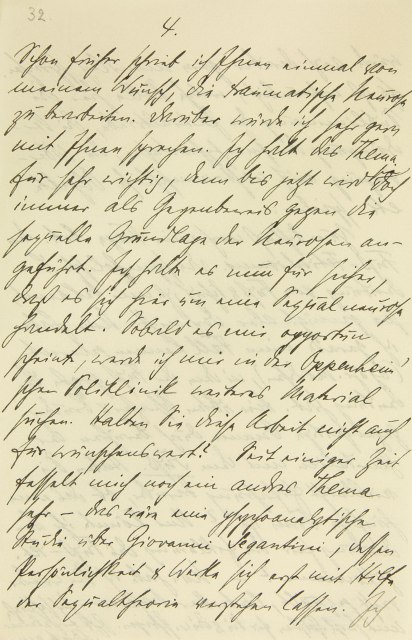 32.
4.
Schon früher schrieb ich Ihnen einmal von
meinem Wunsch, die traumatische Neurose
zu bearbeiten. Darüber würde ich sehr gern
mit Ihnen sprechen. Ich halte das Thema
für sehr wichtig, denn bis jetzt wird
immer als Gegenbeweis gegen die
sexuelle Grundlage der Neurosen an-
geführt. Ich halte es nun für sicher,
daß es sich hier um eine Sexualneurose
handelt. Sobald es mir opportun
scheint, werde ich mir in der Oppenheim'
schen Poliklinik weiteres Material
suchen. Halten Sie diese Arbeit nicht auch
für wünschenswert? Seit einiger Zeit
fesselt mich noch ein andres Thema
sehr – das wäre eine psychoanalytische
Studie über Giovanni Segantini, dessen
Persönlichkeit & Werke sich erst mit Hilfe
der Sexualtheorie verstehen lassen. Ich